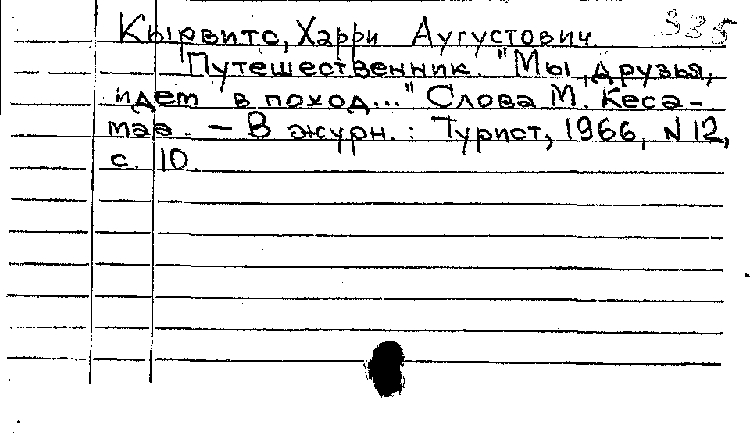 Кырвитс, Харри Аугустович 335
Путешественник. "Мы, друзья,
идем в поход..." Слова М. Кеса-
маа. – В журн.: Турист, 1966, N 12,
с. 10